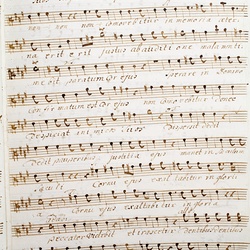 non non com ovebitur in memoria aeter
na erit erit justus ab auditione mala non ti
me bit paratum Cor ejus sperare in Domino
Confirmatum est Cor ejus non com movebitur donec
Despiciat inimicos suos Dispersit dedit
Dedit pauperibus justitia ejus manet in
saeculi Cornu ejus exaltabitur in gloria
Cornu ejus exaltabitur in gloria
peccator videbit et irascetur Dentibus suis